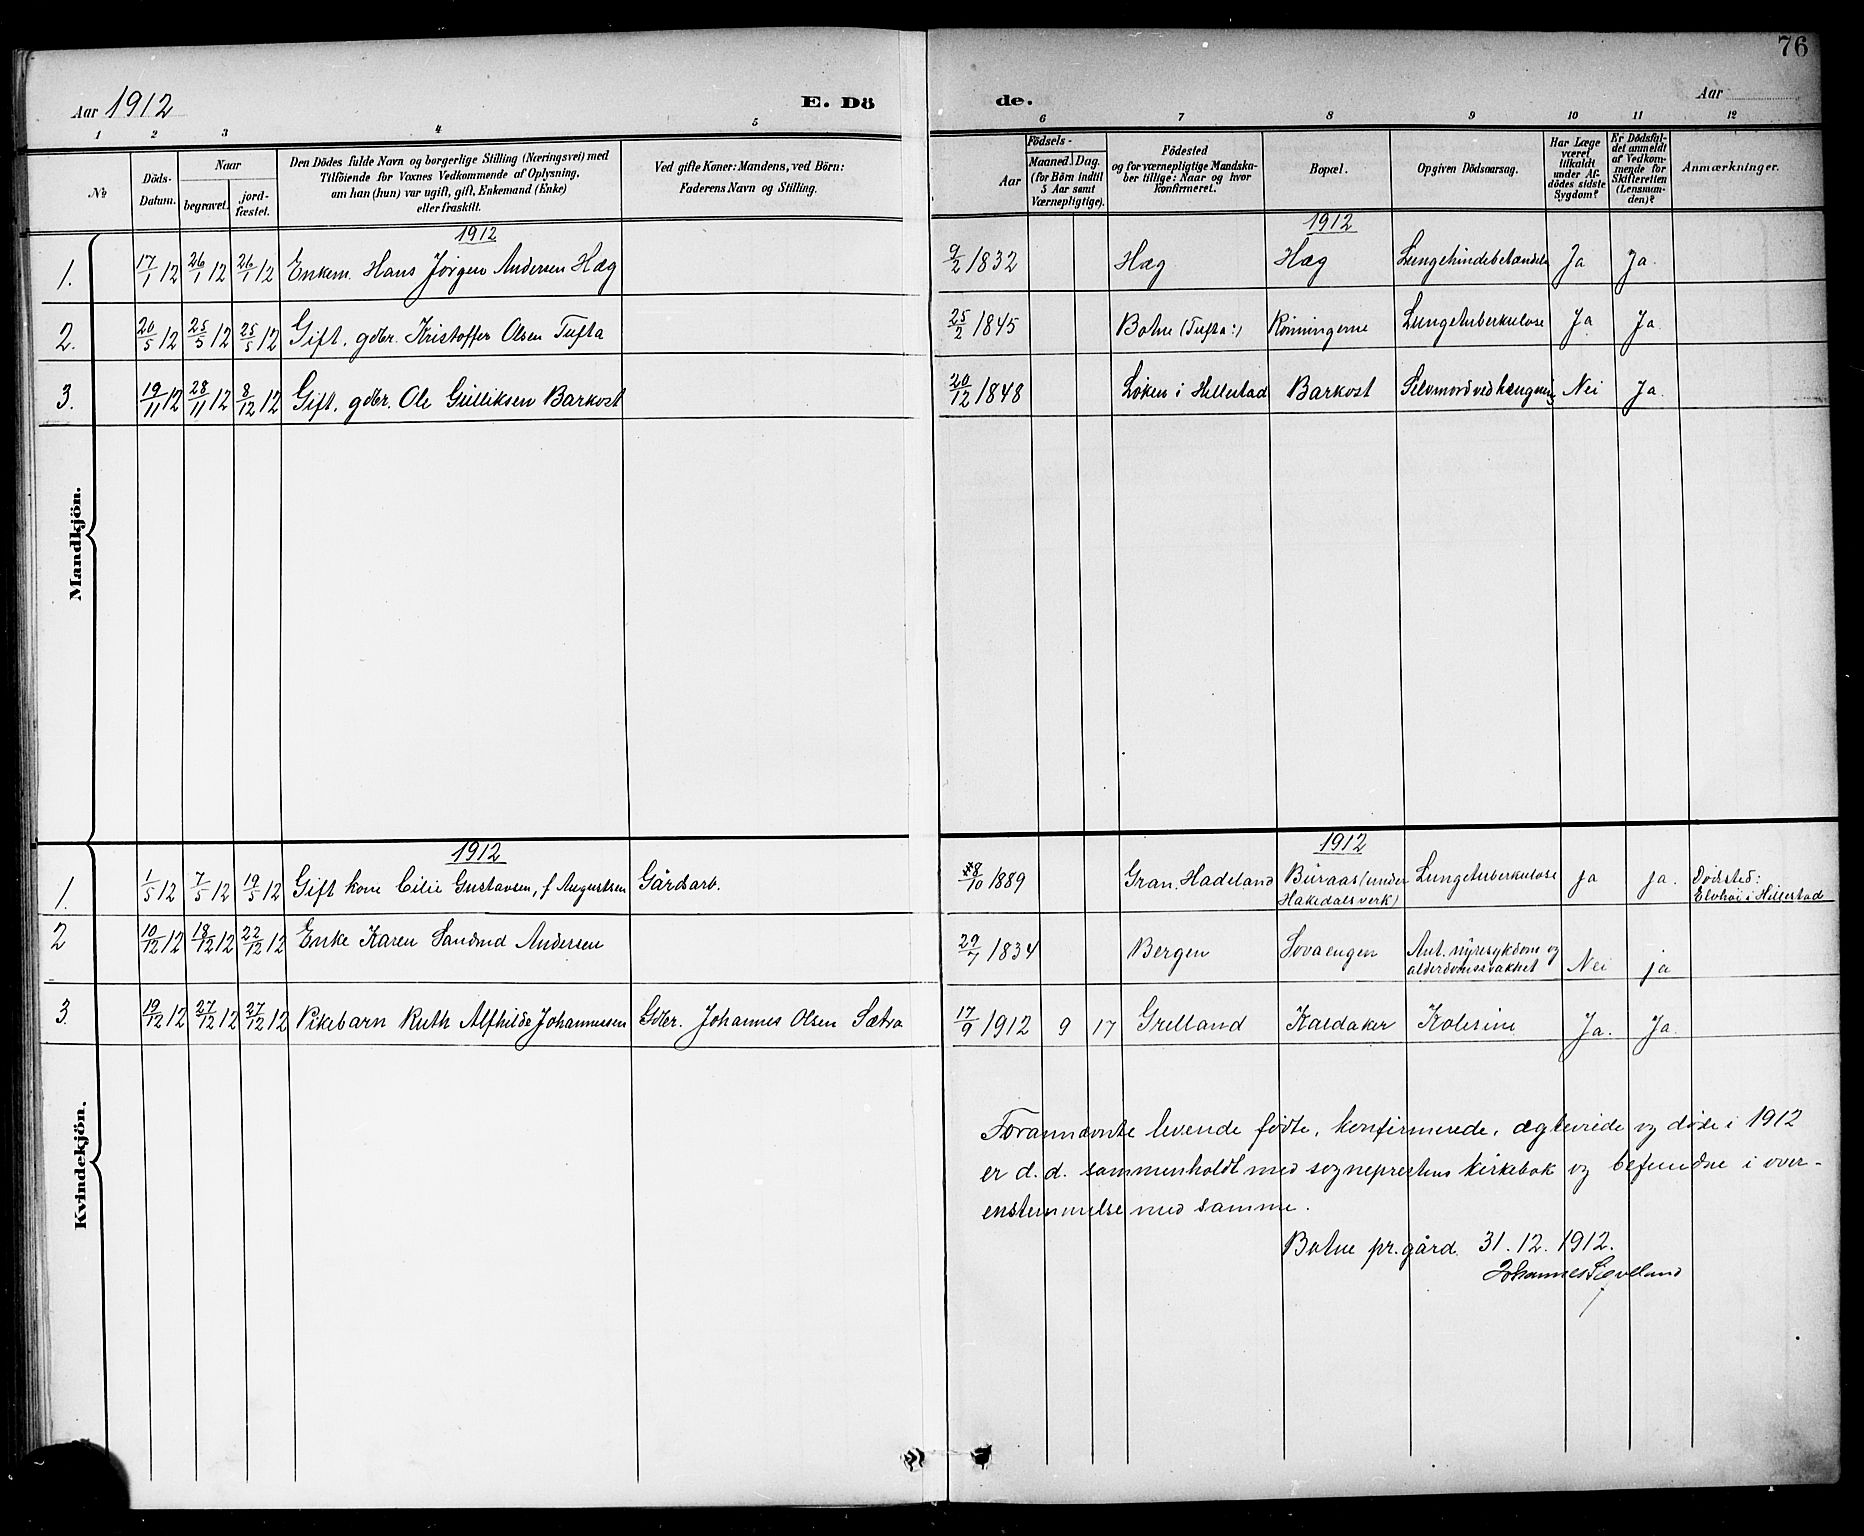 76
Aar 1912
E. Dö
de.
Aar
1 2 3 4 5
6 7 8 9 10 11 12
No
Döds-
Datum.
Naar
begravet.
jord-
fæstet.
Den Dödes fulde Navn og borgerlige Stilling (Næringsvei) med
Tilföiende for Voxnes Vedkommende af Oplysning,
om han (hun) var ugift, gift, Enkemand (Enke)
eller fraskilt.
Ved gifte Koner: Mandens, ved Börn:
Faderens Navn og Stilling.
Födsels-
Aar
Maaned. Dag.
(for Börn indtil
5 Aar samt
Værnepligtige).
Födested
og for værnepligtige Mandska-
ber tillige: Naar og hvor
konfirmeret.
Bopæl.
Opgiven Dödsaarsag.
Har Læge
været
tilkaldt
under Af-
dödes sidste
Sygdom?
Er Dödsfal-
det anmeldt
af Vedkom-
mende for
Skifteretten
(Lensman-
den)?
Anmærkninger.
Mandkjön.
1912
1912
1. 17/1 12 26/1 12 26/1 12 Enkem. Hans Jørgen Andersen Hæg 9/2 1832 Hæg Hæg Lungehindebetændelse Ja Ja.
2. 20/5 12 25/5 12 25/5 12 Gift. gdbr. Kristoffer Olsen Tufta 25/2 1845 Botne (Tufta:) Rønningerne Lungetuberkulose Ja Ja.
3. 19/11 12 28/11 12 8/12 12 Gift. gdbr. Ole Gulliksen Barkost 20/12 1848 Løken i Hillestad Barkost Selvmord ved hængning Nei Ja.
Kvindekjön.
1912
1912
1. 1/5 12 7/5 12 19/5 12 Gift kone Cilie Gustavsen, f. Augustsen Gårdsarb. 8/10 1889 Gran, Hadeland Buraas (under
Hakedals verk) Lungetuberkulose ja ja. Dødsted:
Elvhøi i Hillestad
2 10/12 12 18/12 12 22/12 12 Enke Karen Sandmd Andersen 29/7 1834 Bergen Sovaengen Ant. nyresykdom og
alderdomssvakhet Nei ja
3. 19/12 12 27/12 12 27/12 12 Pikebarn Ruth Alfhilde Johannessen Gdbr. Johannes Olsen Sætra 17/9 1912 9 17 Grelland Kaldaker Kolerine Ja. Ja.
Forannævnte levende fødte, konfirmerede, ægteviede og døde i 1912
er d. d. sammenholdt med sogneprestens kirkebok og befundne i over-
ensstemmelse med samme.
Botne pr.gård 31. 12. 1912.
Johannes Søvelland